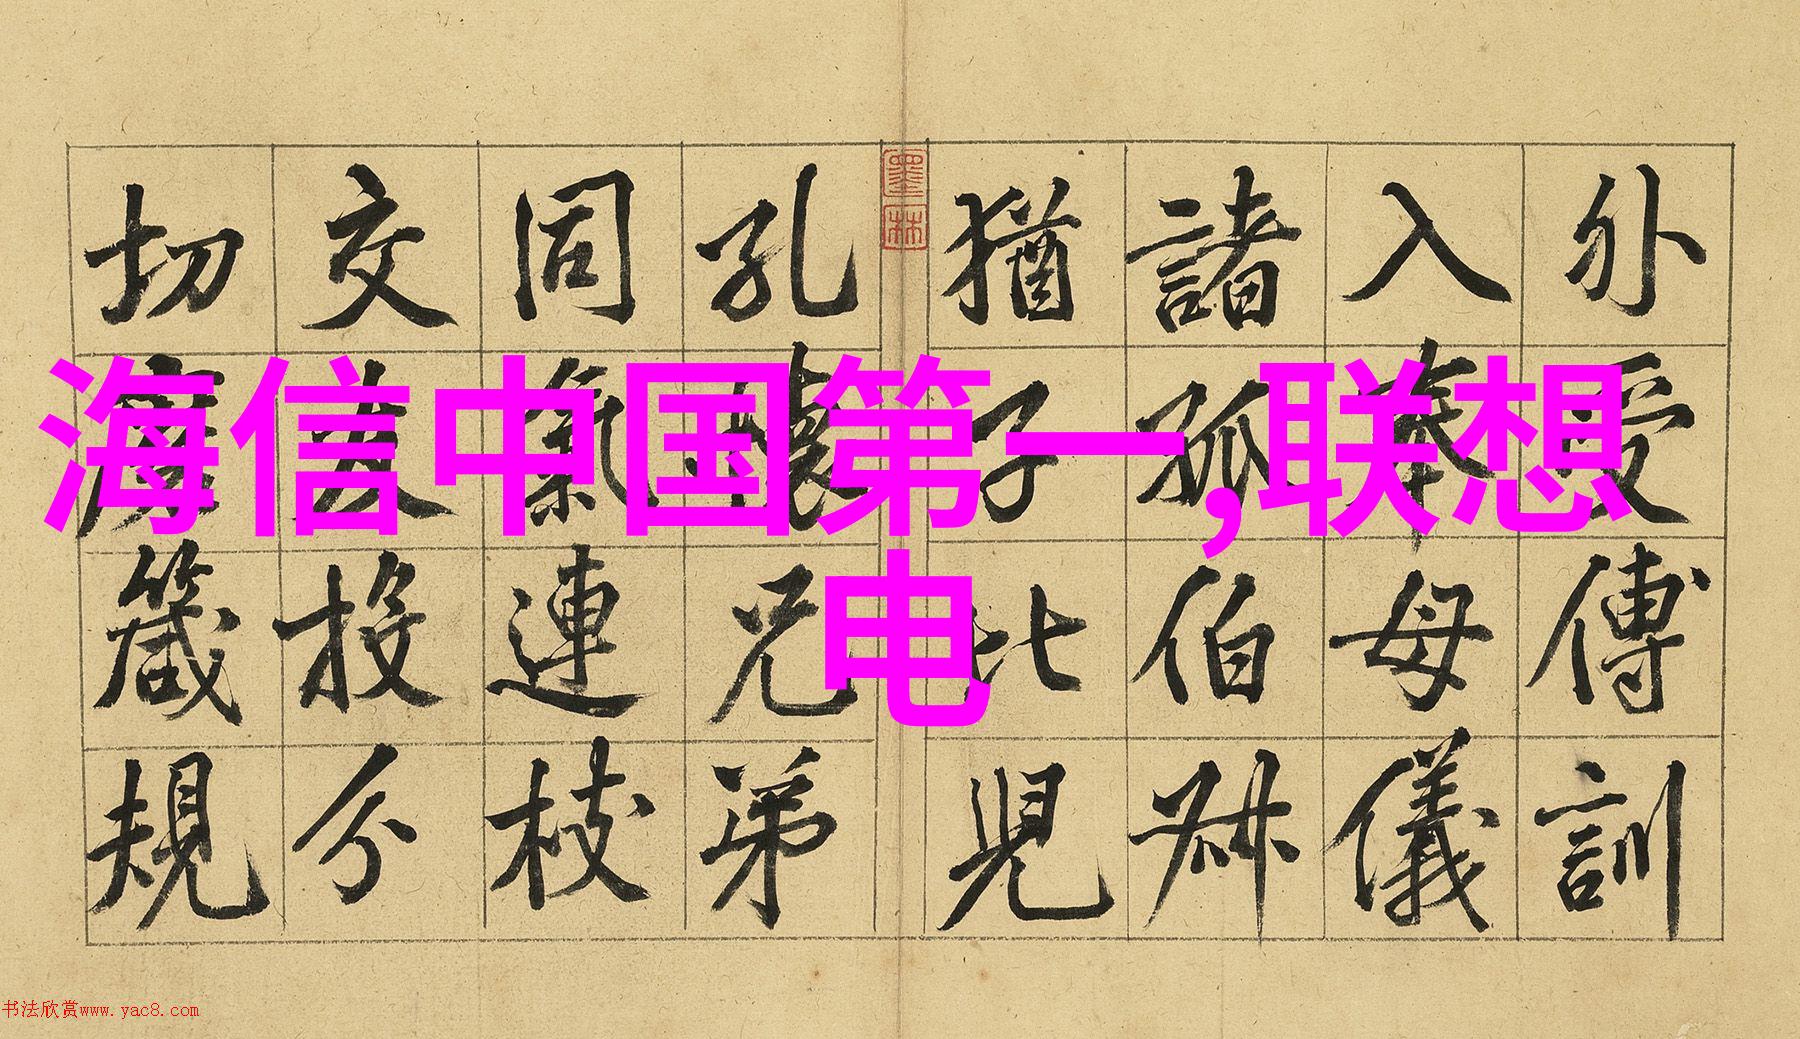 海信中国第一,联想
电
外受傅訓
入奉母儀
諸孤伯叔
猶子比兒
孔懷兄弟
同氣連枝
交友投分
切磨箴規
墨林
书法欣赏www.yac8.com